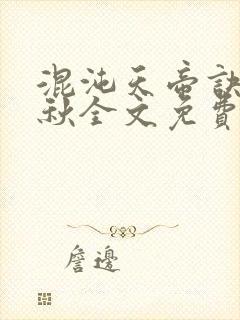 混沌天帝訣
秋全文免費
詹邊